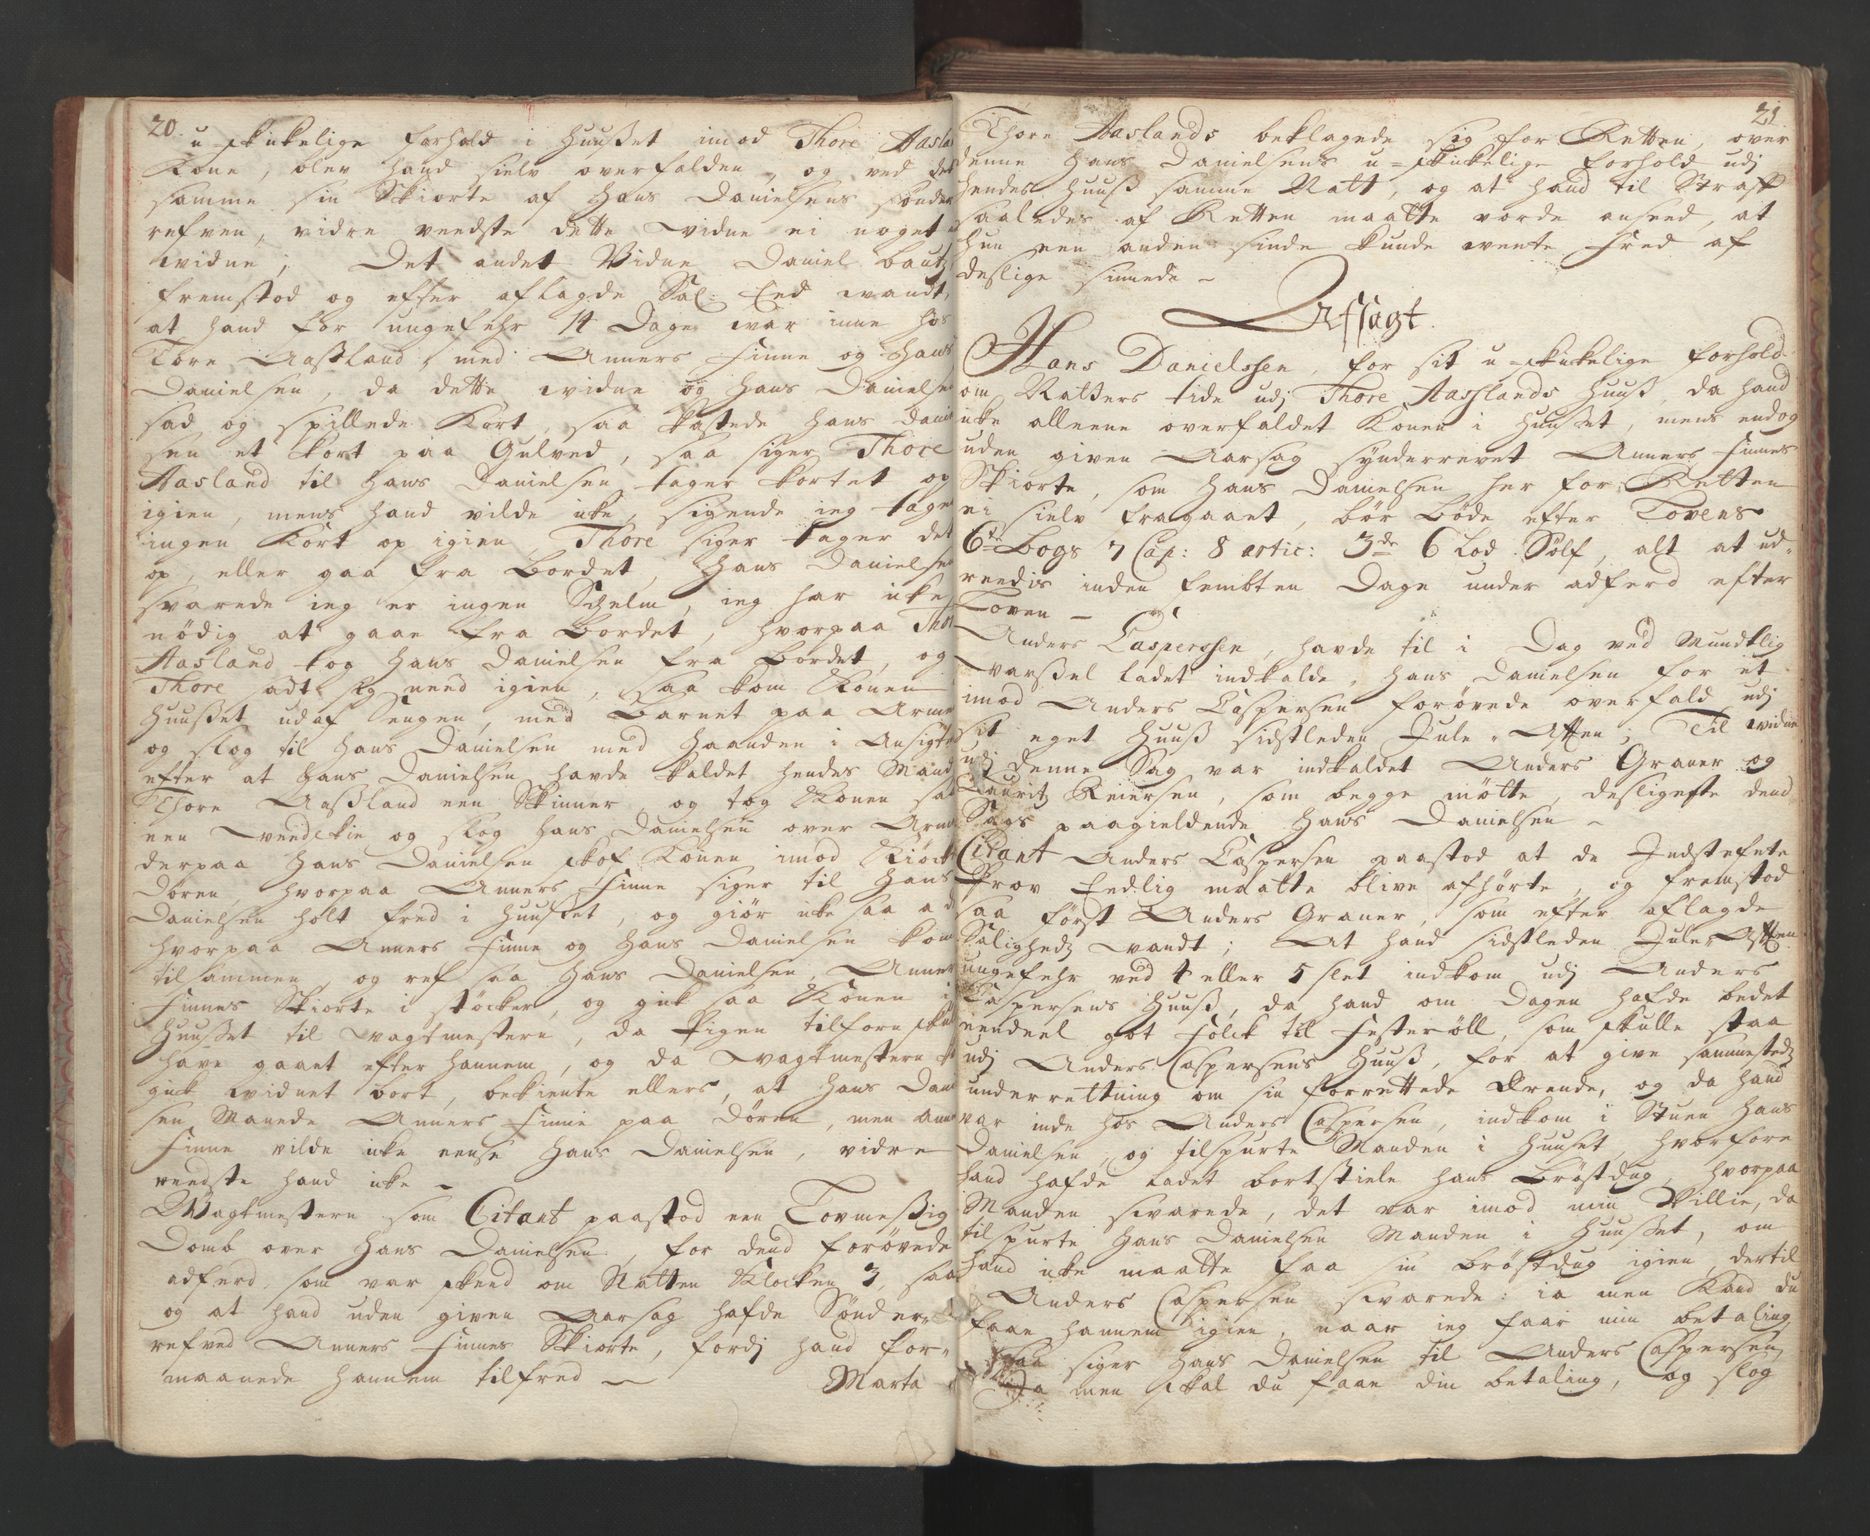 20.
u-skikelige forhold i Huuset imod Thore Aasla
Kone, blev hand sielv overfalden, og ved det
samme sin Skiorte af Hans Danielsens sönder
refven, vidre veedste dette vidne ei noget
vidne; Det andet Vidne Daniel Bautz
fremstod og efter aflagde Sal: Eed vandt,
at hand for ungefehr 14 Dage var inne hos
Tore Aasland, med Anners Finne og Hans
Danielsen, da dette vidne og Hans Danielsen
sad og spillede Kort, saa kastede Hans Daniel
sen et Kort paa Gulved, saa siger Thore
Aasland til Hans Danielsen tager Kortet op
igien, mens hand vilde icke, sigende ieg tager
ingen Kort op igien, Thore siger tager det
op, eller gaa fra Bordet, Hans Danielsen
svarede ieg er ingen Schelm, ieg har icke
nödig at gaae fra Bordet, hvorpaa Thore
Aasland tog Hans Danielsen fra Bordet, og
Thore sadt sig need igien, saa kom Konen
Huuset udaf Sengen, med Barnet paa Armen
og slog til Hans Danielsen med Haanden i Ansigtet
efter at Hans Danielsen havde kaldet hendes Mand
Thore Aasland een Skinner, og tog Konen saa
een Veedskie og slog Hans Danielsen over Armen
derpaa Hans Danielsen skof Konen imod Kiöcken
Dören, hvorpaa Anners Finne siger til Hans
Danielsen holt fred i Huuset, og giör icke saa ad
hvorpaa Anners Finne og Hans Danielsen kom
tilsammen, og ref saa Hans Danielsen, Anners
Finnes Skiorte i støcker, og gik saa Konen i
Huuset til Vagtmestern, da Pigen tilforn skul
have gaaet efter hannem, og da Vagtmestern
gik vidnet bort, bekiente ellers, at Hans Dani
sen Manede Anners Finne paa Dören, men Anne
Finne vilde icke eense Hans Danielsen, vidre
veedste hand icke ~
Vagtmestern som Citant paastod een Lovmeßig
Domb over Hans Danielsen, for dend forövede
adferd som var skeed om Natten Klocken 3, saa
og at hand uden given Aarsag hafde Sönder-
refved Anners Finnes Skiorte, fordj hand for-
maanede hannem til fred ~
Marta
21
Thore Aaslands beklagede sig for Retten, over
denne Hans Danielsens u-skikelige forhold udj
hendes Huuß samme Natt, og at hand til Straf
saaledes af Retten maatte vorde anseed, at
hun een anden sinde kunde vente Fred af
deslige sinnede ~
Afsagt.
Hans Danielssen, for sit u-skikelige forhold
om Natters tide udj Thore Aasslands Huuß, da hand
icke alleene overfaldet Konen i Huuset, mens endog
uden given Aarsag synderrevet Anners Finnes
Skiorte, som Hans Danielsen her for Retten
ei sielv fragaaet, bör Böde efter Lovens
6te Bogs 7 Cap: 8 artic: 3de 6 Lod Sölf, alt at ud-
reedis inden fembten Dage under adferd efter
Loven ~
Anders Casperssen, havde til i Dag ved Mundtlig
Varsel ladet indkalde, Hans Danielsen for et
imod Anders Caspersen forövede overfald udj
sit eget Huuß sidstleden Jule-Aften; Til vidne
udj denne Sag var indkaldet Anders Graner og
Lauritz Reiersen, som begge mötte, desligeste dend
Sags paagieldende Hans Danielsen ~
Citant Anders Caspersen paastod at de Indstefnte
Prov Eedlig maatte blive afhörte, og fremstod
saa först Anders Graner, som efter aflagde
Salighedz vandt; At hand sidstleden Jule-Aften
ungefehr ved 4 eller 5 slet indkom udj Anders
Caspersens Huuß, da hand om Dagen hafde bedet
eendeel got Folck til Festeröll, som skulle staa
udj Anders Caspersens Huuß, for at give sammestedz
underretning om sin forrettede Ærende, og da hand
var inde hos Anders Caspersen, indkom i Stuen Hans
Danielsen, og tilspurte Manden i Huuset, hvorfore
hand hafde ladet bortstiele hans Bröstdug, hvorpaa
Manden svarede, det var imod min Villie, da
tilspurte Hans Danielsen Manden i Huuset, om
hand icke maatte faa sin bröstdug igien, dertil
Anders Caspersen svarede: ia men Kand du
faae hannem igien, naar ieg faar min betaling
saa siger Hans Danielsen til Anders Caspersen
Ja men skal du faae din betaling, og slog